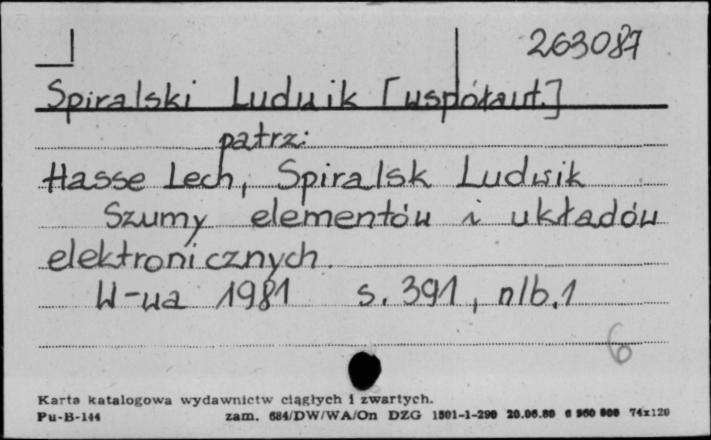 263087
Spiralski Ludwik [współaut.]
patrz:
Hasse Lech, Spiralsk Ludwik
Szumy elementów i układów
elektronicznych.
W-wa 1981 s. 391, nlb. 1
6
Karta katalogowa wydawnictw ciągłych i zwartych.
Pu-B-144 zam. 684/DW/WA/On DZG 1801-1-290 20.06.80 6 960 000 74x120